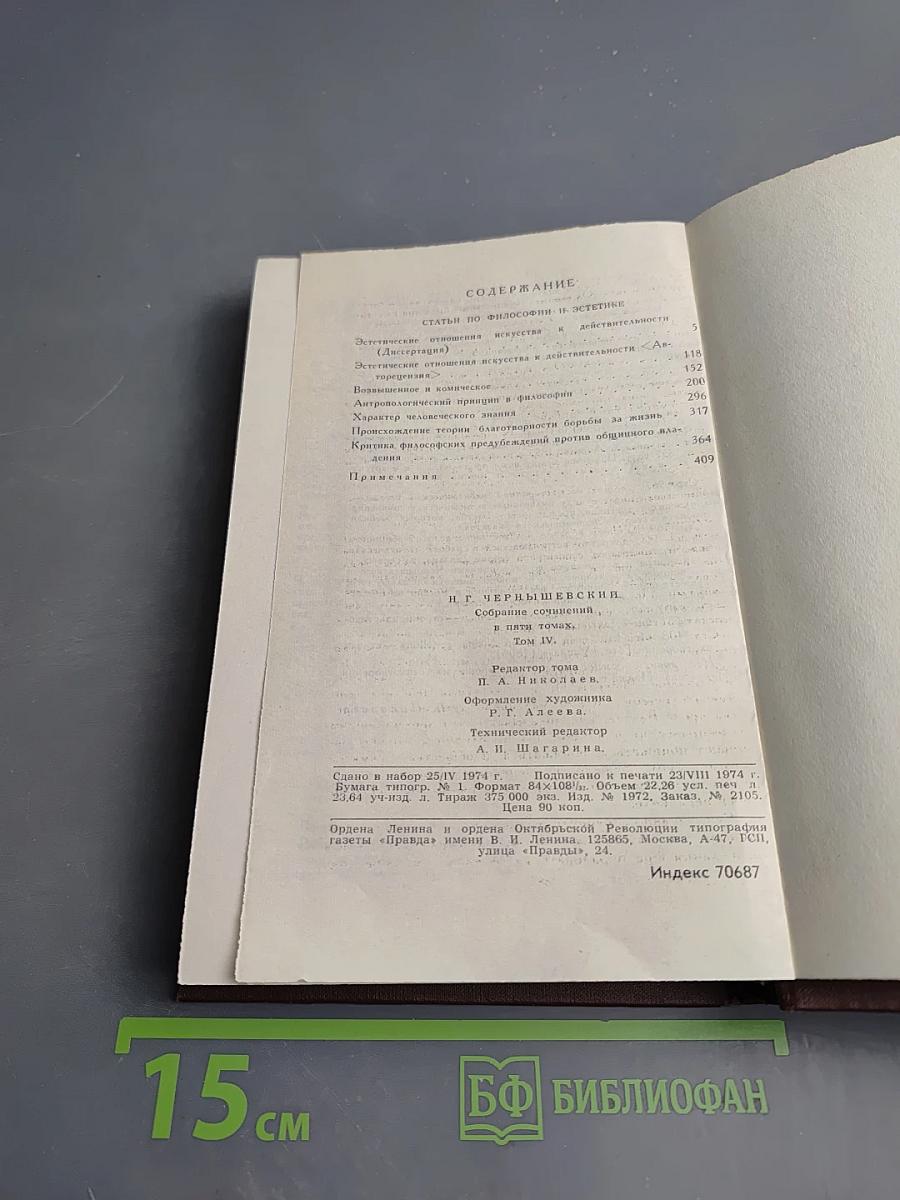 СОДЕРЖАНИЕ
СТАТЬИ ПО ФИЛОСОФИИ И ЭСТЕТИКЕ
Эстетические отношения искусства к действительности
(Диссертация) . . . . . . . . . . . . 5
Эстетические отношения искусства к действительности <Ав-
торецензия> . . . . . . . . . . . . 118
Возвышенное и комическое . . . . . . . . 152
Антропологический принцип в философии . . . . 200
Характер человеческого знания . . . . . . . 296
Происхождение теории благотворности борьбы за жизнь . 317
Критика философских предубеждений против общинного вла-
дения . . . . . . . . . . . . . . 364
Примечания . . . . . . . . . . . . 409
Н. Г. ЧЕРНЫШЕВСКИЙ.
Собрание сочинений
в пяти томах.
Том IV.
Редактор тома
П. А. Николаев.
Оформление художника
Р. Г. Алеева.
Технический редактор
А. И. Шагарина.
Сдано в набор 25/IV 1974 г. Подписано к печати 23/VIII 1974 г.
Бумага типогр. № 1. Формат 84×108¹/₃₂. Объем 22,26 усл. печ л.
23,64 уч-изд. л. Тираж 375 000 экз. Изд. № 1972. Заказ. № 2105.
Цена 90 коп.
Ордена Ленина и ордена Октябрьской Революции типография
газеты «Правда» имени В. И. Ленина. 125865, Москва, А-47, ГСП,
улица «Правды», 24.
Индекс 70687
15 см
БФ БИБЛИОФАН